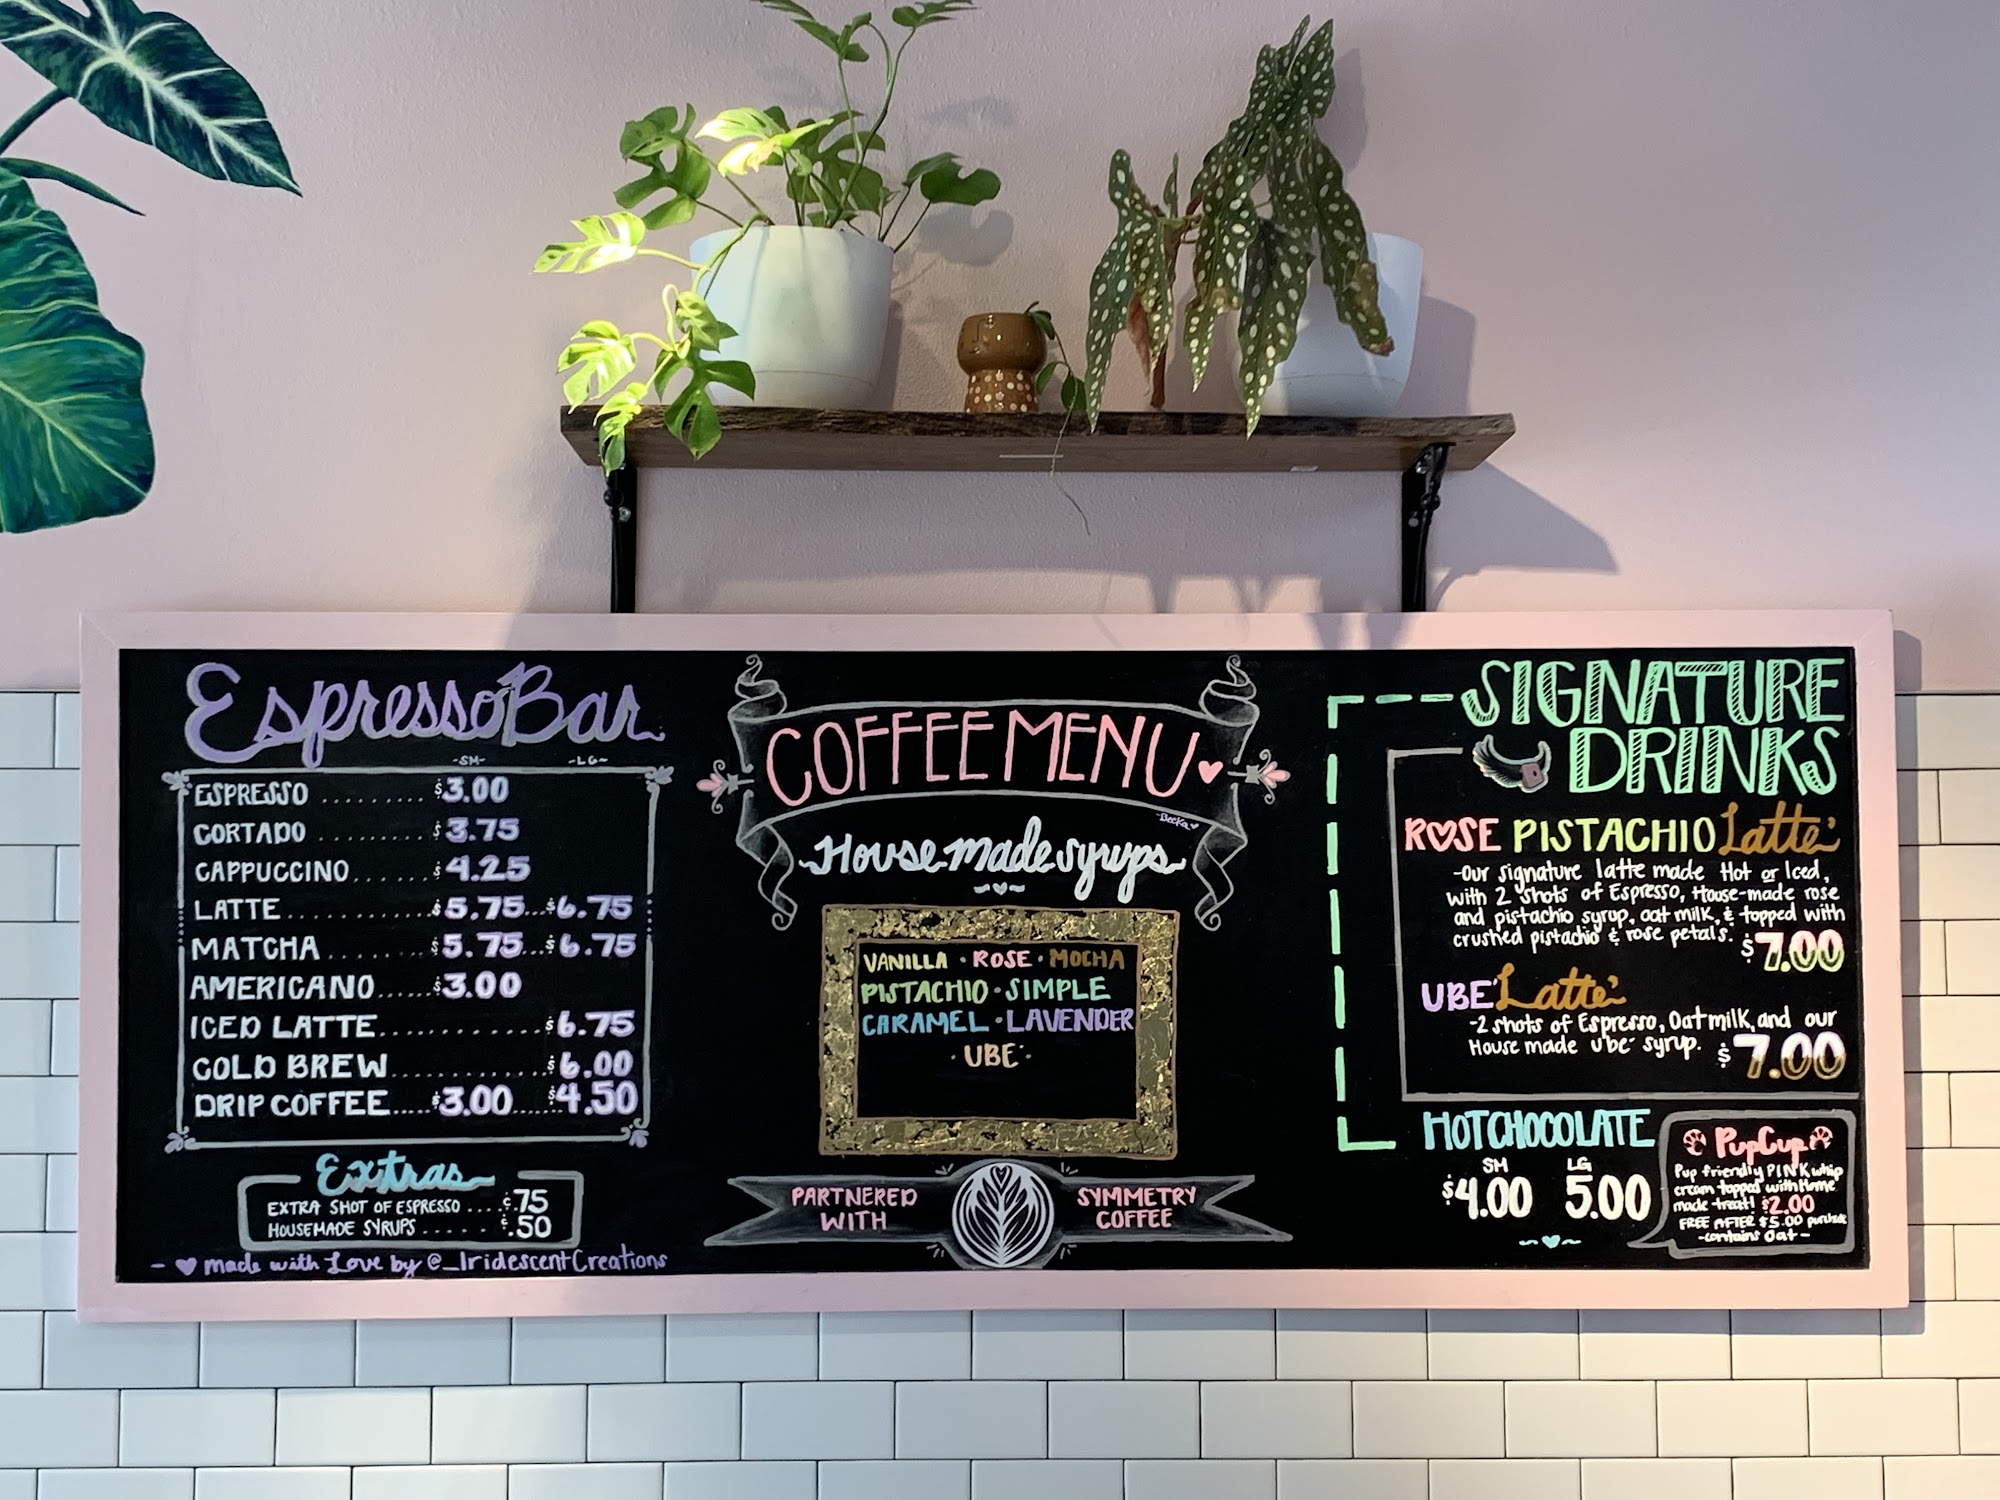 Espresso Bar
-SM- -LG-
ESPRESSO ......... $3.00
CORTADO ......... $3.75
CAPPUCCINO...... $4.25
LATTE............ $5.75...$6.75
MATCHA ......... $5.75...$6.75
AMERICANO......$3.00
ICED LATTE............. $6.75
COLD BREW............ $6.00
DRIP COFFEE.....$3.00.....$4.50
Extras
EXTRA SHOT OF ESPRESSO ....¢.75
HOUSEMADE SYRUPS ....¢.50
- ♥ made with Love by @_IridescentCreations
COFFEE MENU ♥
-Becka♥
House made syrups
VANILLA · ROSE · MOCHA
PISTACHIO · SIMPLE
CARAMEL · LAVENDER
· UBE ·
PARTNERED
WITH
SYMMETRY
COFFEE
SIGNATURE
DRINKS
ROSE PISTACHIO Latte
-Our signature latte made Hot or Iced,
with 2 shots of Espresso, House-made rose
and pistachio syrup, oat milk, & topped with
crushed pistachio & rose petals. $7.00
UBE Latte
-2 shots of Espresso, Oat milk, and our
House made ube syrup. $7.00
HOT CHOCOLATE
SM LG
$4.00 5.00
PupCup
Pup friendly PINK whip
cream topped with Home
made treat! $2.00
FREE AFTER $5.00 purchase
-contains Oat-